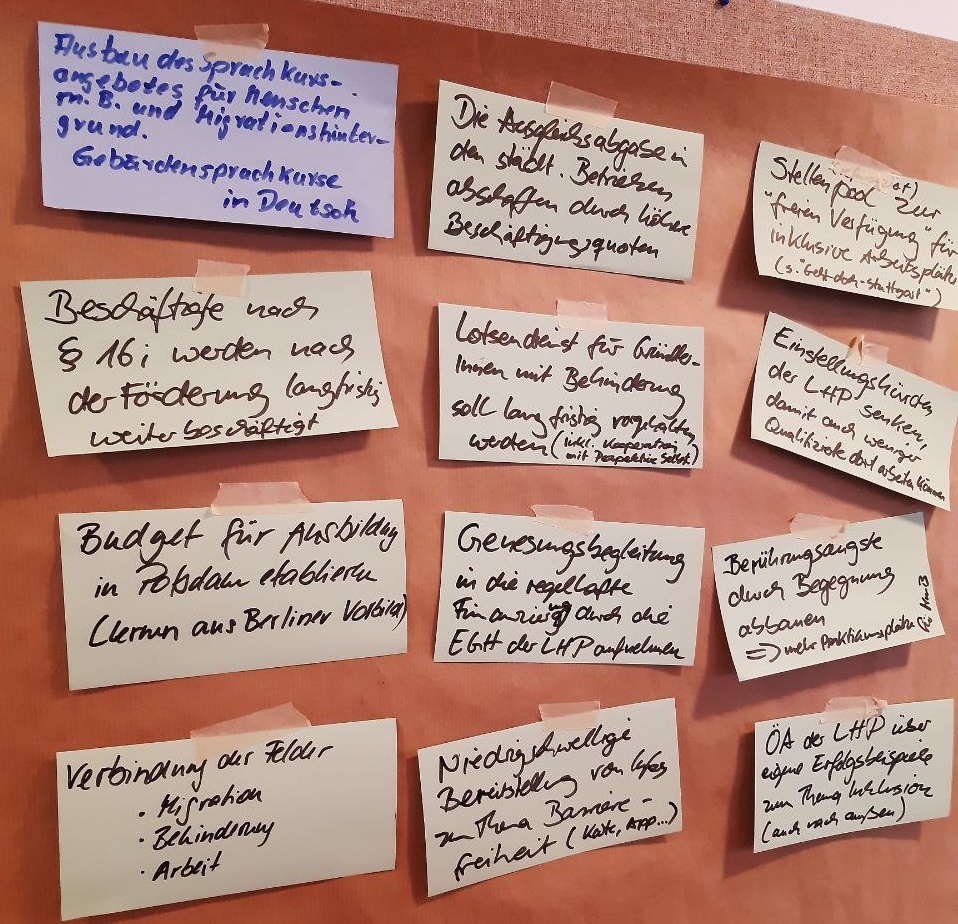 Ausbau des Sprachkurs-
angebotes für Menschen
m. B. und Migrationshinter-
grund.
Gebärdensprachkurse
in Deutsch
Die Ausgleichsabgabe in
den städt. Betrieben
abschaffen durch höhere
Beschäftigungsquoten
Stellenpool zur
"freien Verfügung" für
inklusive Arbeitsplätze
(s. "Geht doch - Stuttgart")
Beschäftigte nach
§ 16i werden nach
der Förderung langfristig
weiterbeschäftigt
Lotsendienst für Gründer-
Innen mit Behinderung
soll langfristig vorgehalten
werden (inkl. Kooperation
mit Perspektive Selbst.)
Einstellungshürden
der LHP senken,
damit auch weniger
Qualifizierte dort arbeiten können
Budget für Ausbildung
in Potsdam etablieren
(lernen aus Berliner Vorbild)
Genesungsbegleitung
in die regelhafte
Finanzierung durch die
EGH der LHP aufnehmen
Berührungsängste
durch Begegnung
abbauen
=> mehr Praktikumsplätze
Verbindung der Felder
• Migration
• Behinderung
• Arbeit
Niedrigschwellige
Bereitstellung von Infos
zum Thema Barriere-
freiheit (Karte, App...)
ÖA der LHP über
eigene Erfolgsbeispiele
zum Thema Inklusion
(auch nach außen)